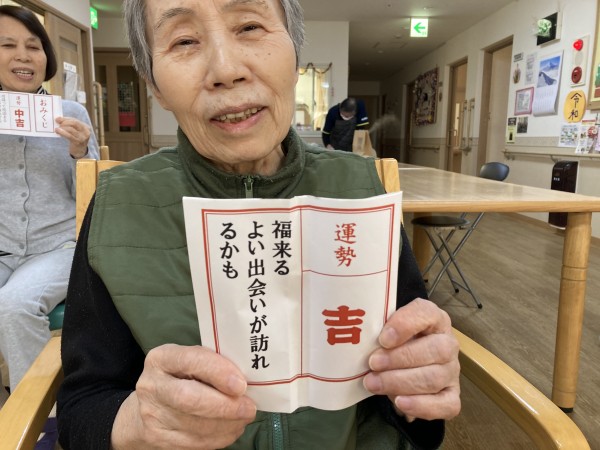 運勢
吉
福来る
よい出会いが訪れ
るかも
おみくじ
運勢
中吉
令和